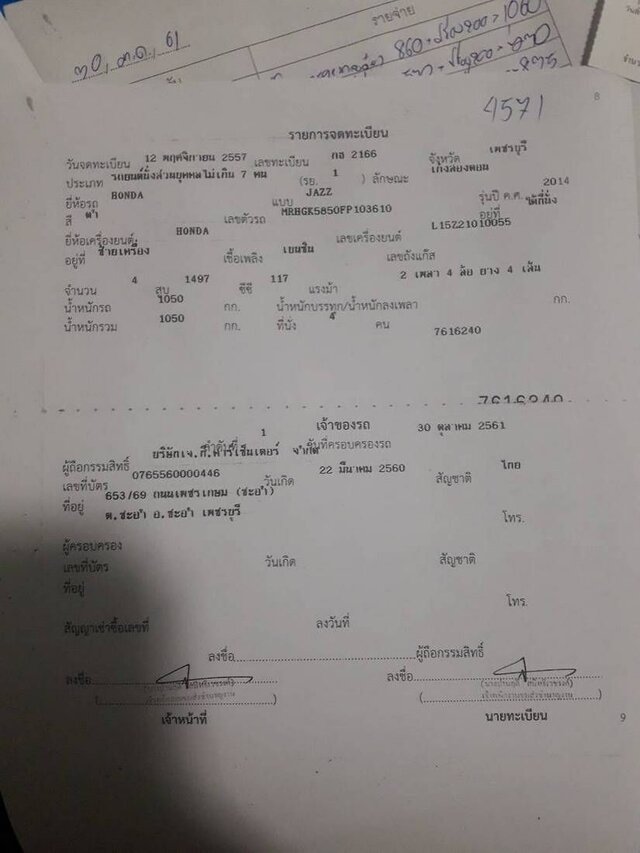 รายจ่าย
30, ต.ค., 61
860 + 200 = 1060
4571
8
รายการจดทะเบียน
วันจดทะเบียน 12 พฤศจิกายน 2557 เลขทะเบียน กฮ 2166 จังหวัด เพชรบุรี
ประเภท รถยนต์นั่งส่วนบุคคลไม่เกิน 7 คน (รย. 1 ) ลักษณะ เก๋งสองตอน
ยี่ห้อรถ HONDA แบบ JAZZ รุ่นปี ค.ศ. 2014
สี ดำ เลขตัวรถ MRHGK5850FP103610 อยู่ที่ ใต้ที่นั่ง
ยี่ห้อเครื่องยนต์ HONDA เลขเครื่องยนต์ L15Z21010055
อยู่ที่ ซ้ายเครื่อง เชื้อเพลิง เบนซิน เลขถังแก๊ส
จำนวน 4 สูบ 1497 ซีซี 117 แรงม้า 2 เพลา 4 ล้อ ยาง 4 เส้น
น้ำหนักรถ 1050 กก. น้ำหนักบรรทุก/น้ำหนักลงเพลา กก.
น้ำหนักรวม 1050 กก. ที่นั่ง 4 คน
7616240
7616240
เจ้าของรถ
ลำดับที่ 1 วันที่ครอบครองรถ 30 ตุลาคม 2561
ผู้ถือกรรมสิทธิ์ บริษัทเจ.ที.คาร์เซ็นเตอร์ จำกัด
เลขที่บัตร 0765560000446 วันเกิด 22 มีนาคม 2560 สัญชาติ ไทย
ที่อยู่ 653/69 ถนนเพชรเกษม (ชะอำ)
ต.ชะอำ อ.ชะอำ เพชรบุรี โทร.
ผู้ครอบครอง
เลขที่บัตร วันเกิด สัญชาติ
ที่อยู่
โทร.
สัญญาเช่าซื้อเลขที่ ลงวันที่
ลงชื่อ ผู้ถือกรรมสิทธิ์
ลงชื่อ ลงชื่อ
เจ้าหน้าที่ นายทะเบียน
9